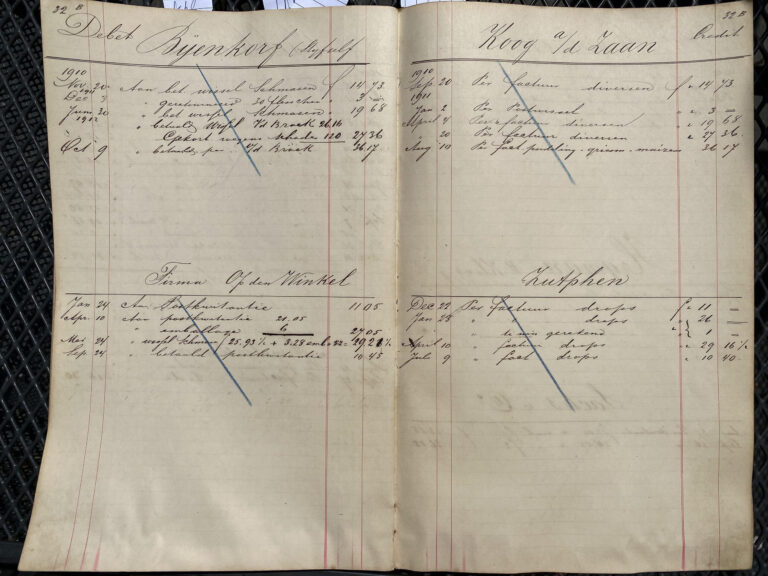 32 B
Debet Bijenkorf
1910
Nov. 20 Aan bet wissel Schmasen f 14 73
Dec 3 " geretourneerd 30 flesschen " 3 —
Juni 30 " bet wissel Schmasen " 19 68
1912 " betaald wissel v/d Broek 26.16
1.20 27 36
Oct 9 " betaald per v/d Broek 36 17
Firma Op den Winkel
Jan 24 Aan Postkwitantie 11 05
Apr. 10 Aan postkwitantie 21.05
" emballage 6 27 05
Mei 24 " wissel 25.93 ½ + 3.28 emb = 29 21 ½
Sep 24 " betaald postkwitantie 10 45
32 B
Koog a/d Zaan Credit
1910
Sep 20 Per factuur diversen f 14 73
1911
Jan 2 Per " 3 —
April 4 Per factuur diversen " 19 68
" 20 Per factuur diversen " 27 36
Aug 10 Per fact. pudding. griesm. maizena 36 17
Zutphen
Dec 22 Per factuur drops f 11 —
Jan 28 " " drops " 26 —
" te min gerekend " 1 —
April 10 " factuur drops " 29 16 ½
Juli 9 " fact drops " 10 40